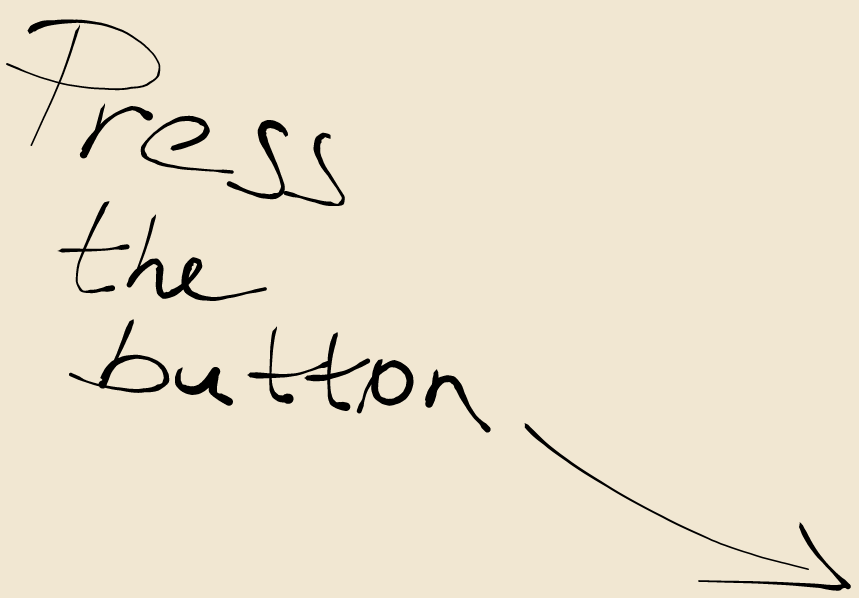 Press
the
button